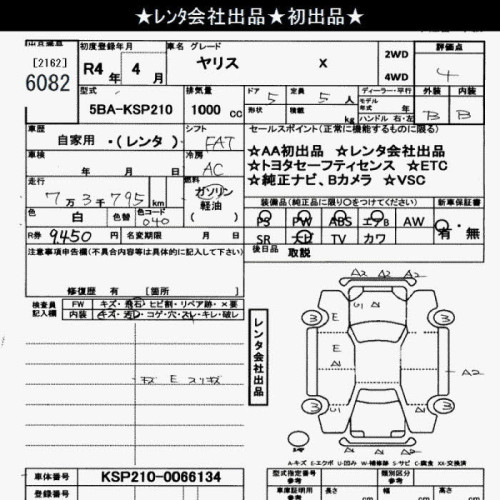 ★レンタ会社出品★初出品★
[2162]
6082
初度登録年月
R4年 4月
車名 グレード
ヤリス X
2WD
4WD
評価点
4
型式
5BA-KSP210
排気量
1000 cc
ドア 5
形状
定員 5人
積載 kg
ディーラー・平行
モデル
年式 年
ハンドル 右・左
外装 内装
B B
車歴
自家用 ・(レンタ)
シフト
FAT
セールスポイント(正常に機能するものに限る)
★AA初出品 ★レンタ会社出品
★トヨタセーフティセンス ★ETC
★純正ナビ、Bカメラ ★VSC
車検
年 月 日
冷房
AC
走行
7万3千795km
燃料
ガソリン
軽油
( )
色 白 色替 色コード 040
装備品(純正品に限り○をつけてください)
新車保証書
PS PW ABS エアB AW
SR ナビ TV カワ
有・無
R券 9,450円 名変期限 月 日
後日品 取説
注意事項申告欄(不具合内容等は具体的に記入して下さい)
修復歴 有 [箇所 ]
検査員
記入欄
FW キズ・飛石・ヒビ割・リペア跡・×要
内装 キズ・汚レ・コゲ・穴・スレ・キレ・破レ
キズ E スリキズ
レンタ会社出品
A2 A2
3 3
E A1
E
A1
A2
3 3
A1 A2
A-キズ E-エクボ U-凹み W-補修跡 S-サビ C-腐食 XX-交換済
車体番号 KSP210-0066134
登録番号
型式指定番号 類別区分
長さ cm 幅 cm 高さ